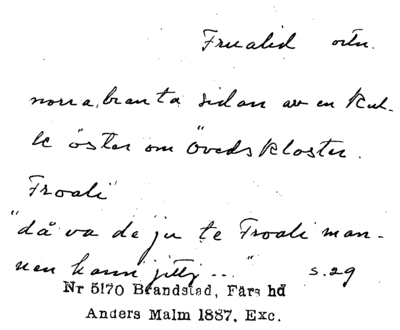 Frualid ortn.
norra, branta sidan av en kul-
le öster om Övedskloster.
Froali
"då va de ju te Froali man-
nen kann jitty ..." s. 29
Nr 5170 Brandstad, Färs hd
Anders Malm 1887, Exc.